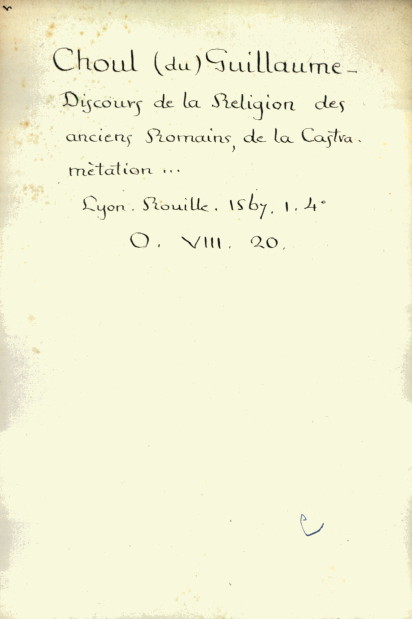 Choul (du) Guillaume -
Discours de la Religion des
anciens Romains, de la Castra-
mètation ...
Lyon. Rouille. 1567. 1. 4°
O. VIII. 20.